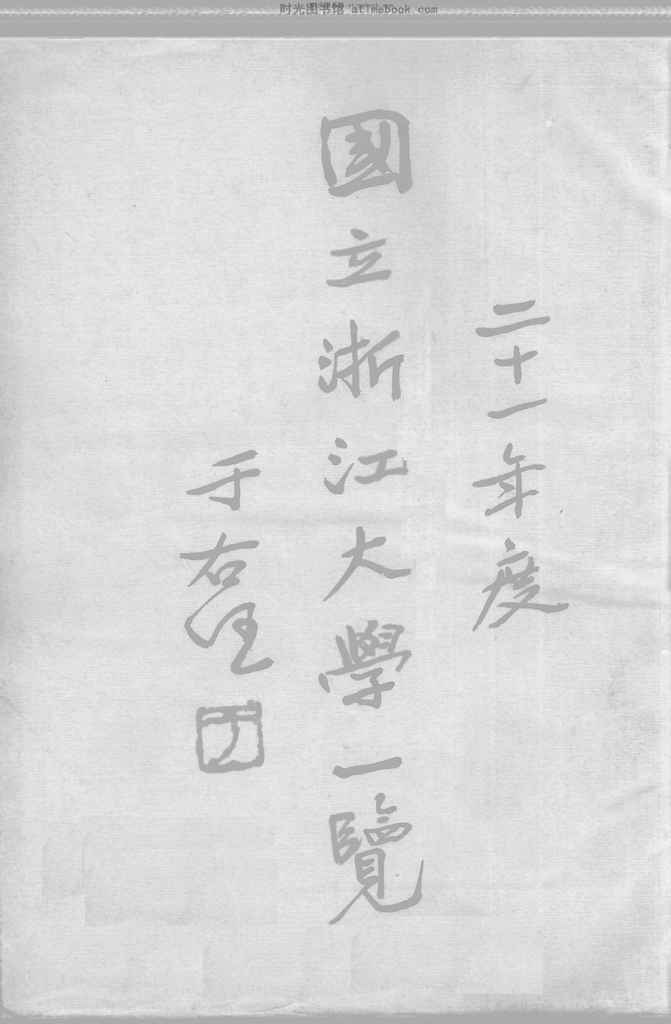 时光图书馆 atTmebook.com
二十一年度
國立浙江大學一覽
于右任